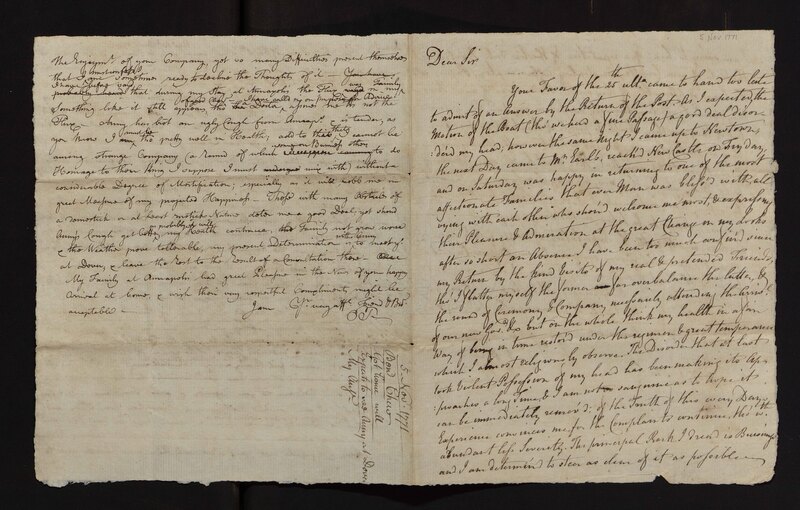 5 Nov 1771
Dear Sir
Your Favor of the 25th ulta. came to hand too late
to admit of an answer by the Return of the Post. As I expected, the
Motion of the Boat (tho' we had a fine Passage) a good deal disor-
dered my head, however the same Night I came up to Newtown,
the next Day came to Mr. Earle's, reach'd New Castle on Fryday,
and on Saturday was happy in returning to one of the most
affectionate Families that ever Man was bless'd with, all
vying with each other who should welcome me most, & expressing
their Pleasure & Admiration at the great Change in my Looks
after so short an Absence. I have been too much confined since
my Return by the kind Visits of my real & pretended Friends,
tho' I flatter myself the former far overbalance the latter, &
the round of Ceremony & Company necessarily attending the
of our new Govr. &c but on the whole think my health in a fair
Way of being in time restor'd under the regimen & great temperance
which I almost religiously observe. The Disorder that at last
took violent Possession of my head has been making its Ap-
proaches a long time, & I am not so sanguine as to hope it
can be immediately remov'd: of the Truth of this every Day's
Experience convinces me for the Complaint continues, tho' with
abundant less Severity. The principal Rock I dread is Business
and I am determined to steer as clear of it as possible
The Enjoyment of your Company, yet so many Difficulties present themselves
that I am sometimes ready to decline the Thoughts of it
that during my Stay at Annapolis the Flux was in my Family
something like it still appears,
Flux Anny has got an ugly Cough from & is tender, as
you know I am not pretty well in Health; add to this they cannot be
among strange Company (a round of which to do
Homage to their King I suppose I must with) without a
considerable Degree of Mortification; especially as it will rob me in
great Measure of my projected Happiness. Those with many Articles of
a domestick or at least motherly Nature deter me a good Deal, yet shou'd
Anny's Cough get better, my Health continue, the Family not grow worse
& the Weather prove tollerable, my present Determination is to meet yo.
at Dover, & leave the Rest to the Result of a Consultation there.
My Family at Annapolis had great Pleasure in the News of your happy
Arrival at home, & wish their very respectful Compliments might be
acceptable
I am Yr. very afft. Friend &
5 Nov 1771
Benj Chew
Got home well
Expects to see Anny at Dover
My Ansr.